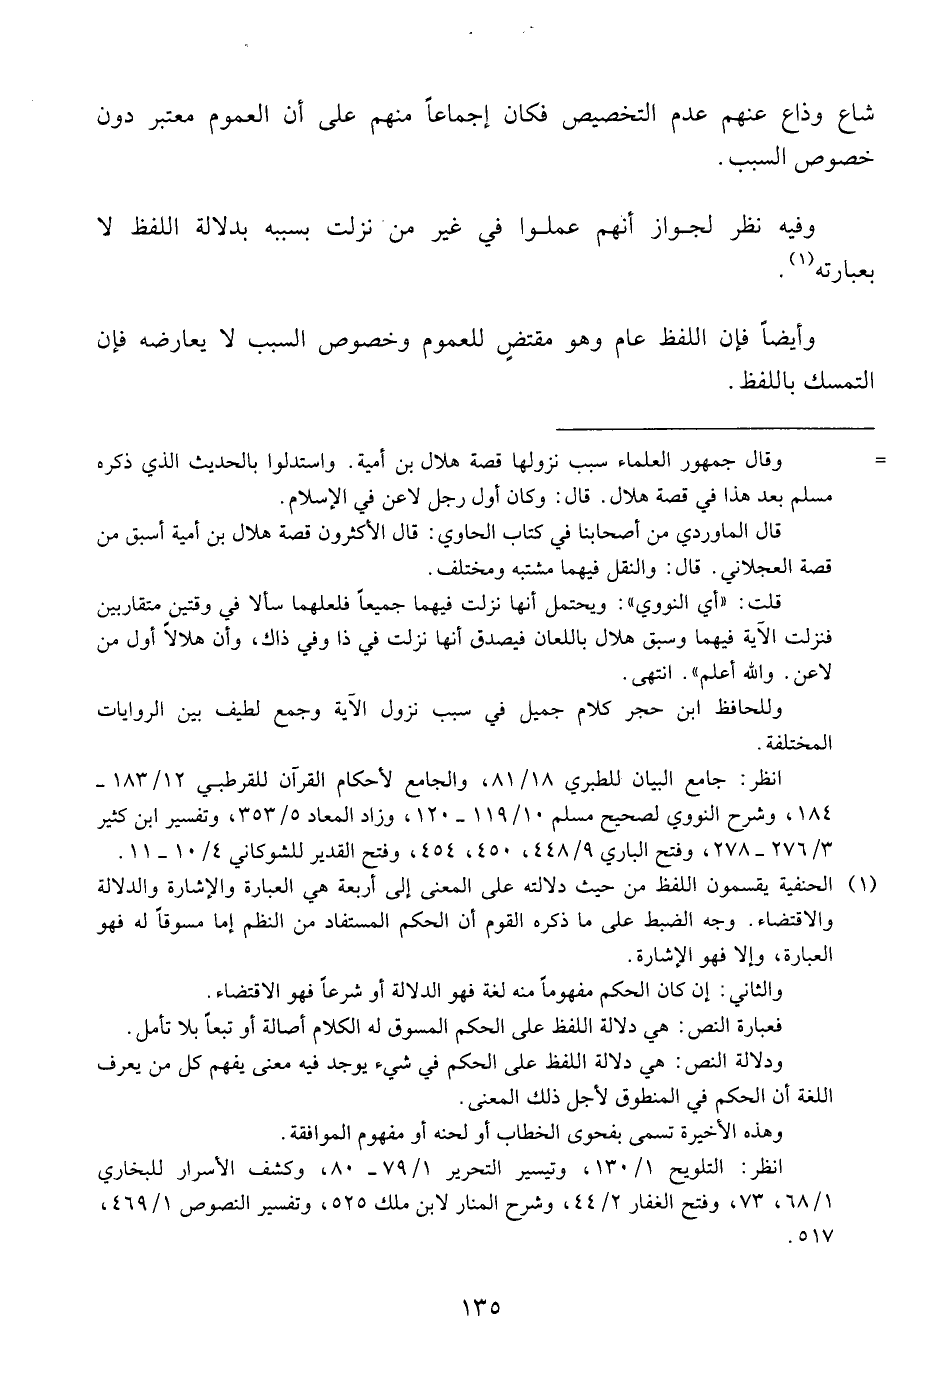 شاع وذاع عنهم عدم التخصيص فكان إجماعاً منهم على أن العموم معتبر دون
خصوص السبب.
وفيه نظر لجواز أنهم عملوا في غير من نزلت بسببه بدلالة اللفظ لا
بعبارته(١).
وأيضاً فإن اللفظ عام وهو مقتضٍ للعموم وخصوص السبب لا يعارضه فإن
التمسك باللفظ.
= وقال جمهور العلماء سبب نزولها قصة هلال بن أمية. واستدلوا بالحديث الذي ذكره
مسلم بعد هذا في قصة هلال. قال: وكان أول رجل لاعن في الإسلام.
قال الماوردي من أصحابنا في كتاب الحاوي: قال الأكثرون قصة هلال بن أمية أسبق من
قصة العجلاني. قال: والنقل فيهما مشتبه ومختلف.
قلت: «أي النووي»: ويحتمل أنها نزلت فيهما جميعاً فلعلهما سألا في وقتين متقاربين
فنزلت الآية فيهما وسبق هلال باللعان فيصدق أنها نزلت في ذا وفي ذاك، وأن هلالاً أول من
لاعن. والله أعلم». انتهى.
وللحافظ ابن حجر كلام جميل في سبب نزول الآية وجمع لطيف بين الروايات
المختلفة.
انظر: جامع البيان للطبري ٨١/١٨، والجامع لأحكام القرآن للقرطبي ١٨٣/١٢ ـ
١٨٤، وشرح النووي لصحيح مسلم ١١٩/١٠ ـ ١٢٠، وزاد المعاد ٣٥٣/٥، وتفسير ابن كثير
٢٧٦/٣ ـ ٢٧٨، وفتح الباري ٤٤٨/٩، ٤٥٠، ٤٥٤، وفتح القدير للشوكاني ١٠/٤ ـ ١١.
(١) الحنفية يقسمون اللفظ من حيث دلالته على المعنى إلى أربعة هي العبارة والإشارة والدلالة
والاقتضاء. وجه الضبط على ما ذكره القوم أن الحكم المستفاد من النظم إما مسوقاً له فهو
العبارة، وإلا فهو الإشارة.
والثاني: إن كان الحكم مفهوماً منه لغة فهو الدلالة أو شرعاً فهو الاقتضاء.
فعبارة النص: هي دلالة اللفظ على الحكم المسوق له الكلام أصالة أو تبعاً بلا تأمل.
ودلالة النص: هي دلالة اللفظ على الحكم في شيء يوجد فيه معنى يفهم كل من يعرف
اللغة أن الحكم في المنطوق لأجل ذلك المعنى.
وهذه الأخيرة تسمى بفحوى الخطاب أو لحنه أو مفهوم الموافقة.
انظر: التلويح ١٣٠/١، وتيسير التحرير ٧٩/١ ـ ٨٠، وكشف الأسرار للبخاري
٦٨/١، ٧٣، وفتح الغفار ٤٤/٢، وشرح المنار لابن ملك ٥٢٥، وتفسير النصوص ٤٦٩/١،
٥١٧.
١٣٥